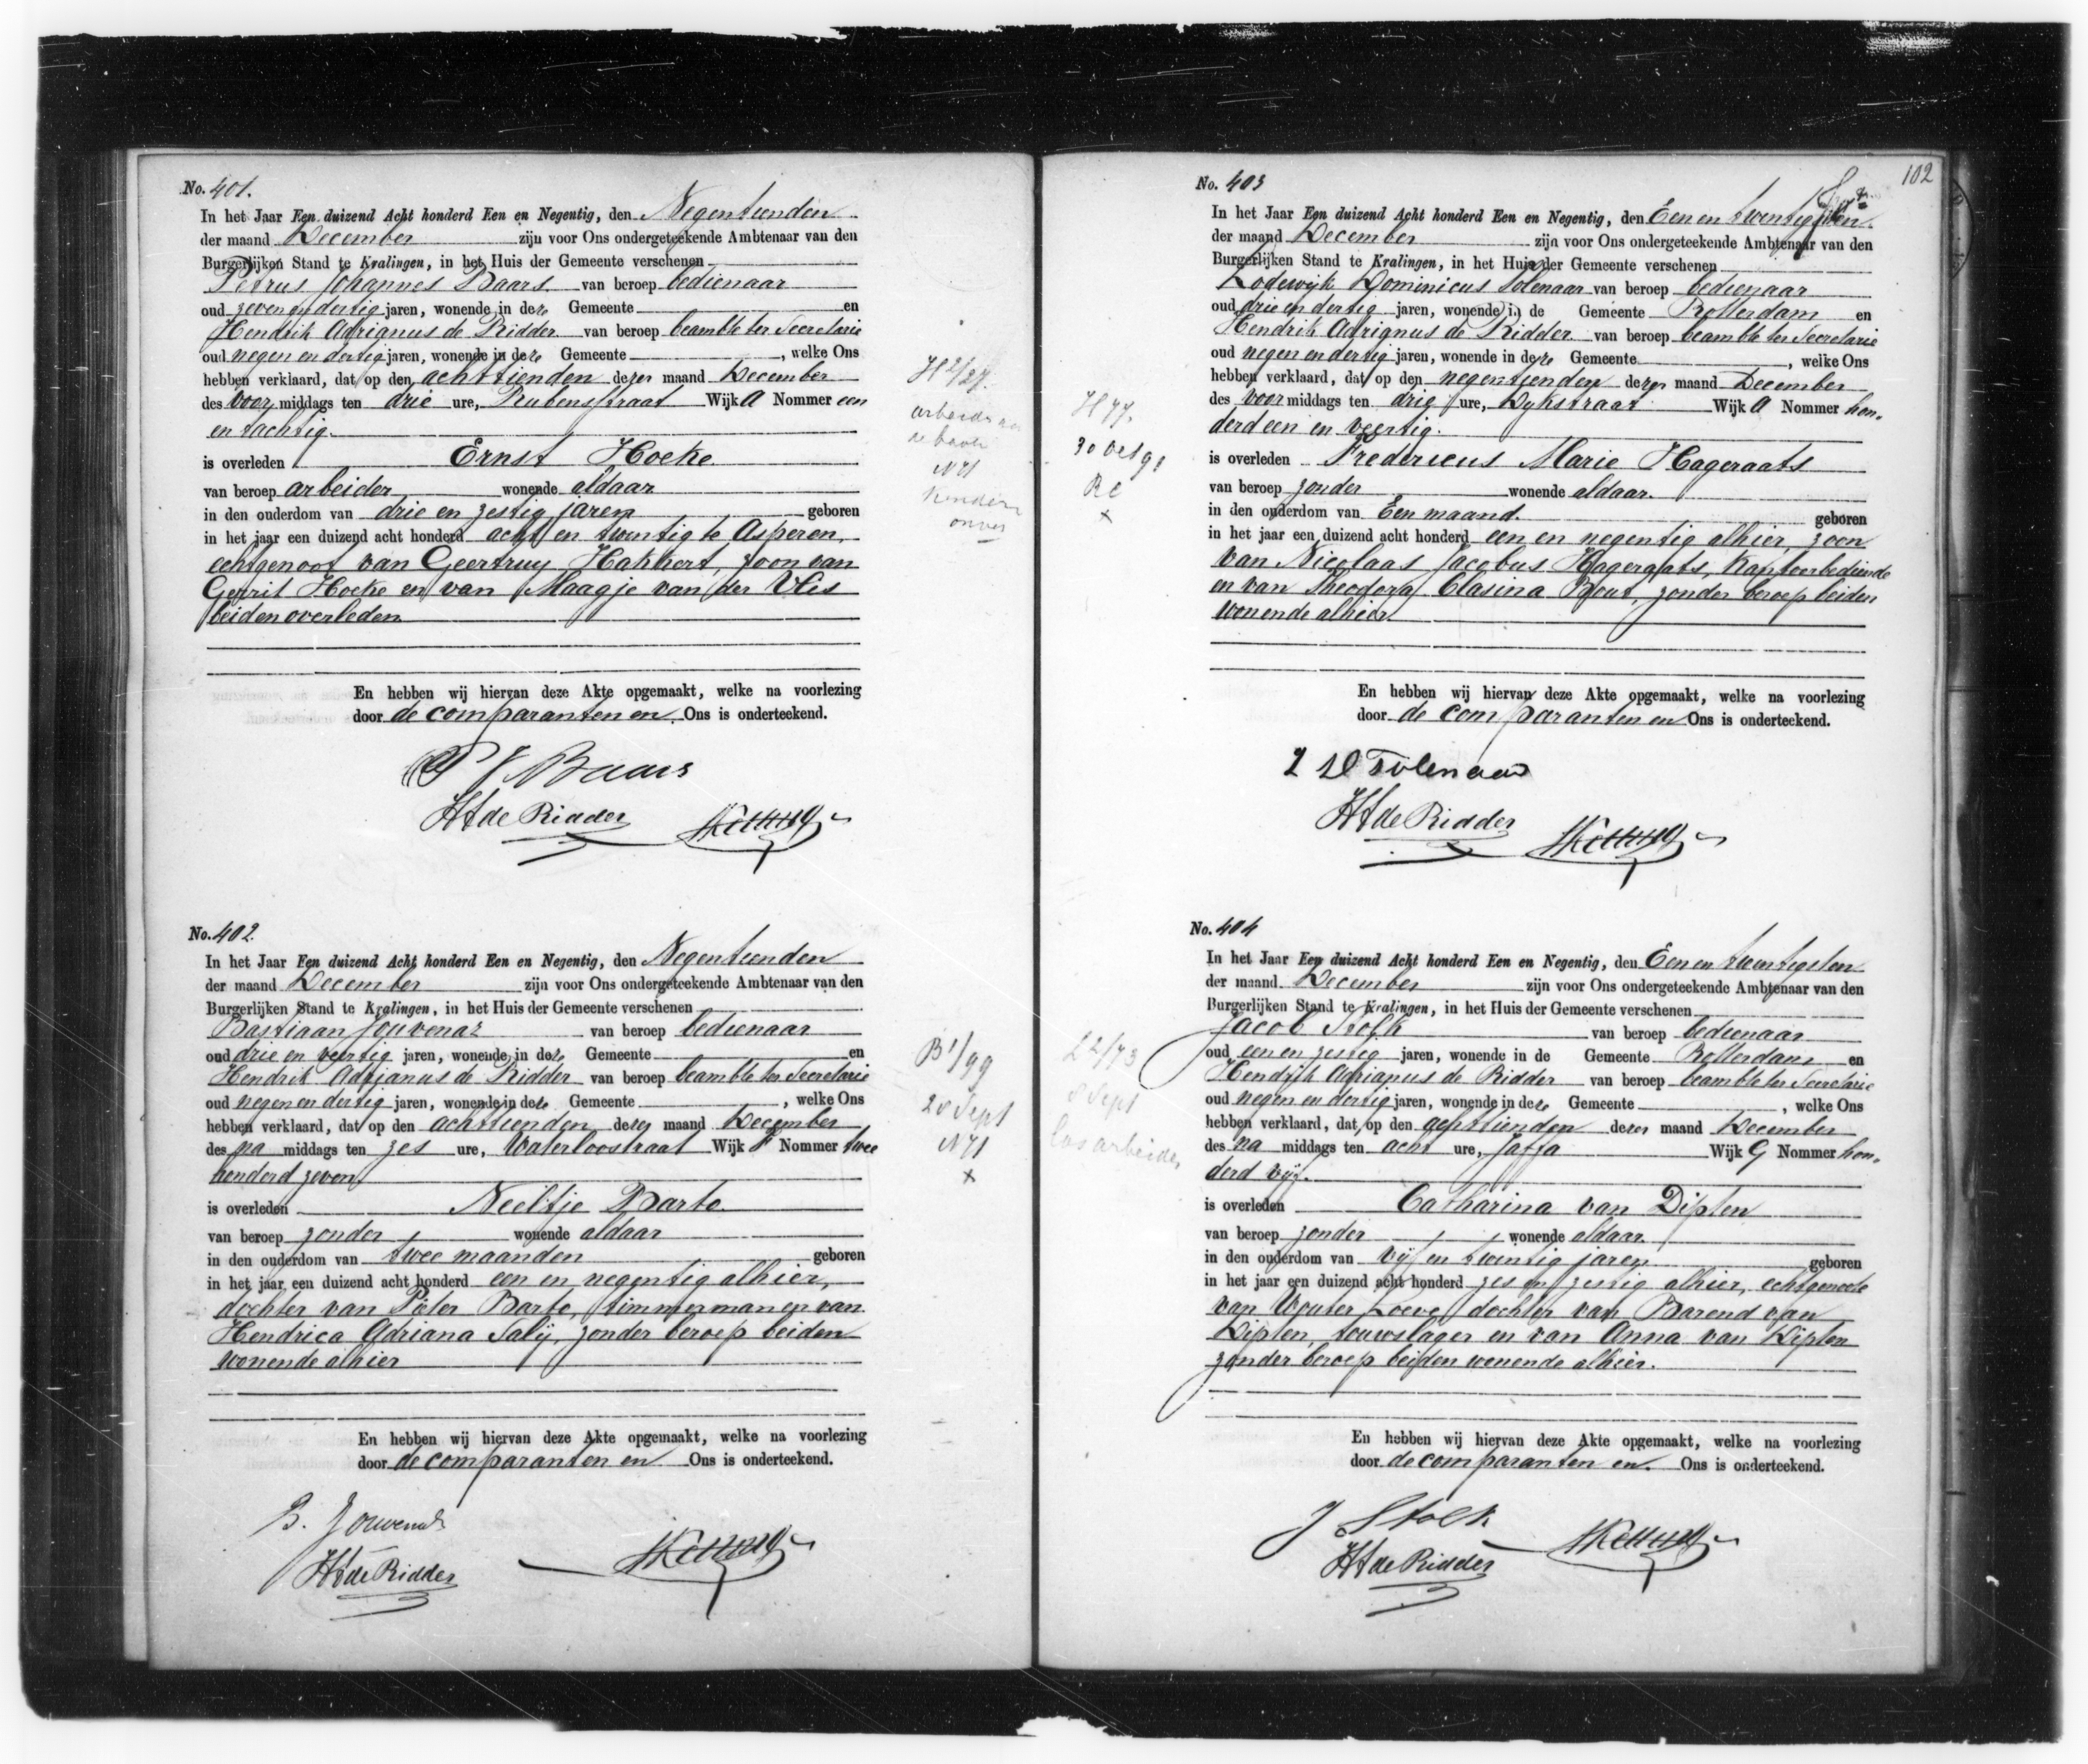 No. 401.
In het Jaar Een duizend Acht honderd Een en Negentig, den Negentienden
der maand December zijn voor Ons ondergeteekende Ambtenaar van den
Burgerlijken Stand te Kralingen, in het Huis der Gemeente verschenen
Petrus Johannes Baars van beroep bedienaar
oud zeven en dertig jaren, wonende in deze Gemeente en
Hendrik Adrianus de Ridder van beroep beambte ter Secretarie
oud negen en dertig jaren, wonende in deze Gemeente , welke Ons
hebben verklaard, dat op den achttienden dezer maand December
des voor middags ten drie ure, Rubensstraat Wijk A Nommer een
en tachtig.
is overleden Ernst Hoeke
van beroep arbeider wonende aldaar
in den ouderdom van drie en zestig jaren geboren
in het jaar een duizend acht honderd acht en twintig te Asperen,
echtgenoot van Geertruy Hakkert, zoon van
Gerrit Hoeke en van Maagje van der Vlies
beiden overleden
En hebben wij hiervan deze Akte opgemaakt, welke na voorlezing
door de comparanten en Ons is onderteekend.
P J Baars
HA de Ridder
H 2/27.
N 71
No. 402.
In het Jaar Een duizend Acht honderd Een en Negentig, den Negentienden
der maand December zijn voor Ons ondergeteekende Ambtenaar van den
Burgerlijken Stand te Kralingen, in het Huis der Gemeente verschenen
Bastiaan Jouvenaz van beroep bedienaar
oud drie en veertig jaren, wonende in deze Gemeente en
Hendrik Adrianus de Ridder van beroep beambte ter Secretarie
oud negen en dertig jaren, wonende in deze Gemeente , welke Ons
hebben verklaard, dat op den achttienden dezer maand December
des na middags ten zes ure, Waterloostraat Wijk F Nommer twee
honderd zeven
is overleden Neeltje Barto
van beroep zonder wonende aldaar
in den ouderdom van twee maanden geboren
in het jaar een duizend acht honderd een en negentig alhier,
dochter van Pieter Barto, timmerman en van
Hendrica Adriana Salij, zonder beroep beiden
wonende alhier
En hebben wij hiervan deze Akte opgemaakt, welke na voorlezing
door de comparanten en Ons is onderteekend.
B. Jouvenaz
HA de Ridder
B 1/99
20 Sept
N 71
x
102
No. 403
In het Jaar Een duizend Acht honderd Een en Negentig, den Een en twintigsten
der maand December zijn voor Ons ondergeteekende Ambtenaar van den
Burgerlijken Stand te Kralingen, in het Huis der Gemeente verschenen
Lodewijk Dominicus Tolenaar van beroep bedienaar
oud drie en dertig jaren, wonende in de Gemeente Rotterdam en
Hendrik Adrianus de Ridder van beroep beambte ter Secretarie
oud negen en dertig jaren, wonende in deze Gemeente , welke Ons
hebben verklaard, dat op den negentienden dezer maand December
des voor middags ten drie ure, Dykstraat Wijk A Nommer hon-
derd een en veertig.
is overleden Fredericus Marie Hageraats
van beroep zonder wonende aldaar.
in den ouderdom van Een maand. geboren
in het jaar een duizend acht honderd een en negentig alhier, zoon
van Nicolaas Jacobus Hageraats, kantoorbediende
en van Theodora Clasina Bout, zonder beroep beiden
wonende alhier.
En hebben wij hiervan deze Akte opgemaakt, welke na voorlezing
door de comparanten en Ons is onderteekend.
L D Tolenaar
HA de Ridder
H 77.
30 oct 91
RC
x
No. 404
In het Jaar Een duizend Acht honderd Een en Negentig, den Een en twintigsten
der maand December zijn voor Ons ondergeteekende Ambtenaar van den
Burgerlijken Stand te Kralingen, in het Huis der Gemeente verschenen
Jacob Stolk van beroep bedienaar
oud een en zestig jaren, wonende in de Gemeente Rotterdam en
Hendrik Adrianus de Ridder van beroep beambte ter Secretarie
oud negen en dertig jaren, wonende in deze Gemeente , welke Ons
hebben verklaard, dat op den achttienden dezer maand December
des na middags ten acht ure, Jaffa Wijk G Nommer hon-
derd vijf.
is overleden Catharina van Diplen
van beroep zonder wonende aldaar.
in den ouderdom van vijf en twintig jaren geboren
in het jaar een duizend acht honderd zes en zestig alhier, echtgenoote
van Wouter Loeve, dochter van Barend van
Diplen, touwslager en van Anna van Diplen
zonder beroep beiden wonende alhier.
En hebben wij hiervan deze Akte opgemaakt, welke na voorlezing
door de comparanten en Ons is onderteekend.
J Stolk
HA de Ridder
L 2/73
8 Sept
los arbeider